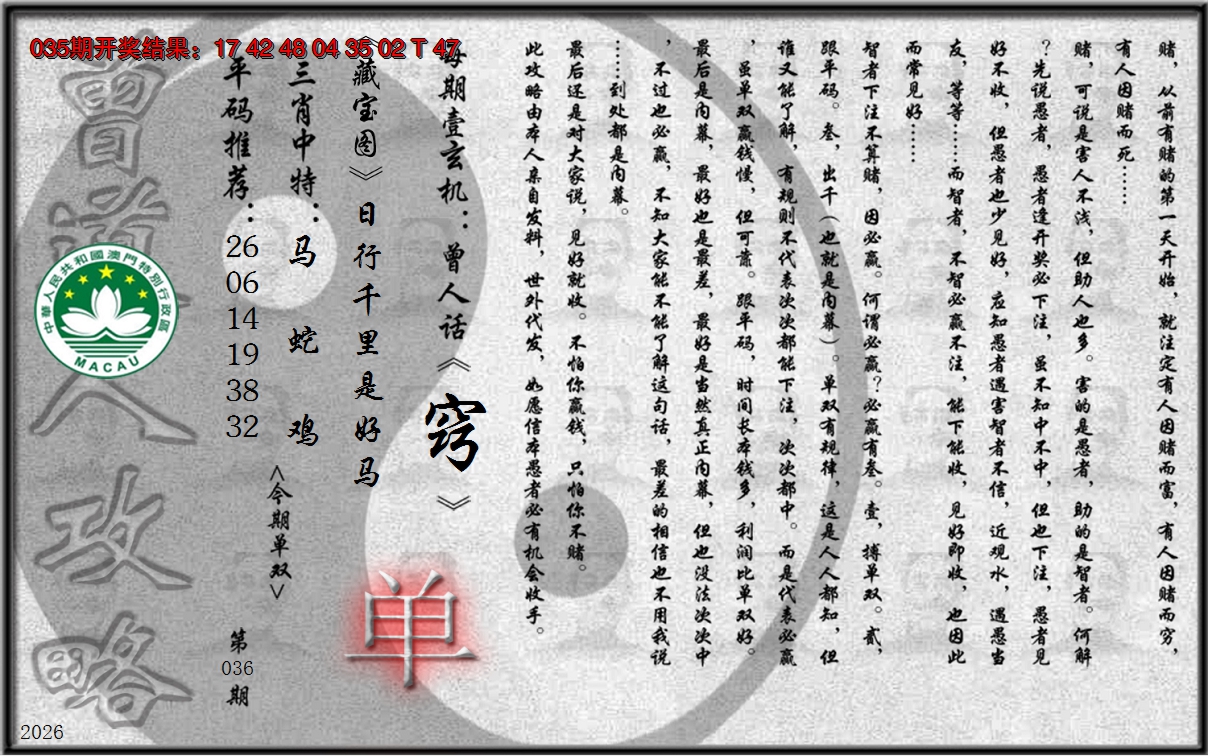 035期开奖结果：17 42 48 04 35 02 T 47
赌，从前有赌的第一天开始，就注定有人因赌而富，有人因赌而穷，
有人因赌而死……
赌，可说是害人不浅，但助人也多。害的是愚者，助的是智者。何解
？先说愚者，愚者逢开奖必下注，虽不知中不中，但也下注，愚者见
好不收，但愚者也少见好，应知愚者遇害智者不信，近观水，遇愚当
友，等等……而智者，不智必赢不注，能下能收，见好即收，也因此
而常见好……
智者下注不算赌，因必赢。何谓必赢？必赢有叁。壹，搏单双。贰，
跟平码。叁，出千（也就是内幕）。单双有规律，这是人人都知，但
谁又能了解，有规则不代表次次都能下注，次次都中。而是代表必赢
，虽单双赢钱慢，但可靠。跟平码，时间长本钱多，利润比单双好。
最后是内幕，最好也是最差，最好是当然真正内幕，但也没法次次中
，不过也必赢，不知大家能不能了解这句话，最差的相信也不用我说
……到处都是内幕。
最后还是对大家说，见好就收。不怕你赢钱，只怕你不赌。
此攻略由本人亲自发料，世外代发，如愿信本愚者必有机会收手。
每期壹玄机：曾人话《窍》
《藏宝图》日行千里是好马
单
三肖中特：马 蛇 鸡
<今期单双>
平码推荐：26 06 14 19 38 32
第036期
曾道人攻略
中華人民共和國澳門特別行政區
MACAU
2026